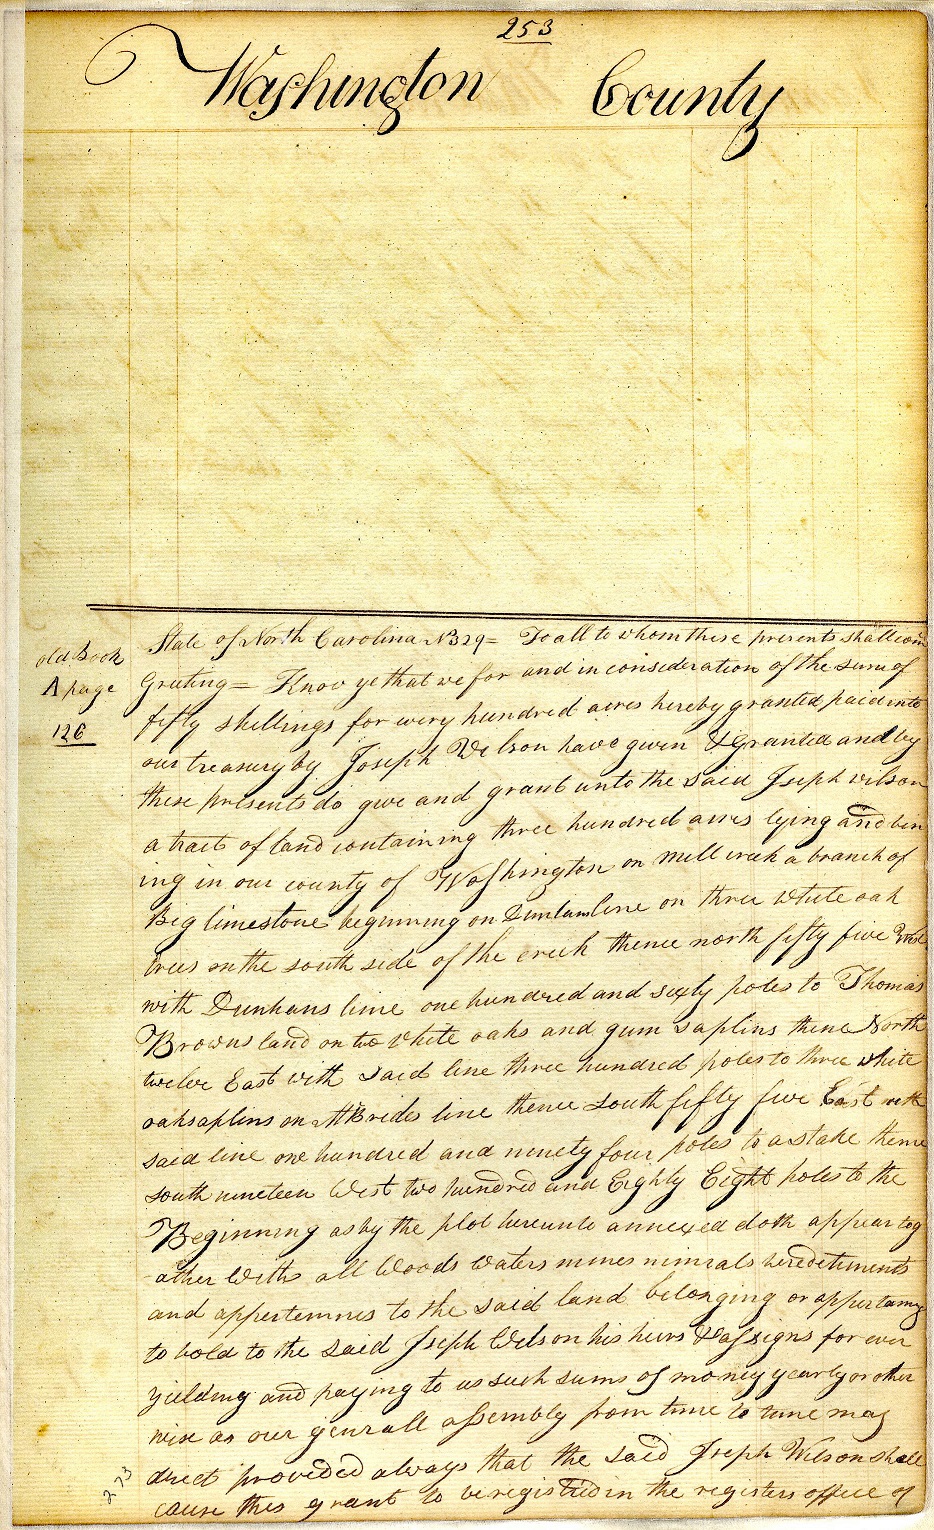 253
Washington County
old Book
A page
126
State of North Carolina No 329 = To all to whom these presents shall com
Greeting = Know ye that we for and in consideration of the sum of
fifty shillings for every hundred acres hereby granted paid into
our treasury by Joseph Wilson have given & Granted and by
these presents do give and grant unto the said Joseph wilson
a tract of land containing three hundred acres lying and bee
ing in our county of Washington on mill creek a branch of
Big limestone beginning on Dunham line on three white oak
trees on the south side of the creek thence north fifty five West
with Dunhans line one hundred and sixty poles to Thomas
Browns land on two white oaks and gum saplins thence North
twelve East with said line three hundred poles to three white
oak saplins on McBrides line thence south fifty five East with
said line one hundred and ninety four poles to a stake thence
south nineteen West two hundred and Eighty Eight poles to the
Beginning as by the plot hereunto annexed doth appear tog
ather With all Woods Waters mines minirals
and to the said land belonging or
to hold to the said Joseph Wilson his heirs & assigns for ever
yielding and paying to us such sums of money yearly or other
wise as our generall assembly from time to time may
direct provided always that the said Joseph Wilson shall
cause this grant to be registred in the registers office of
273